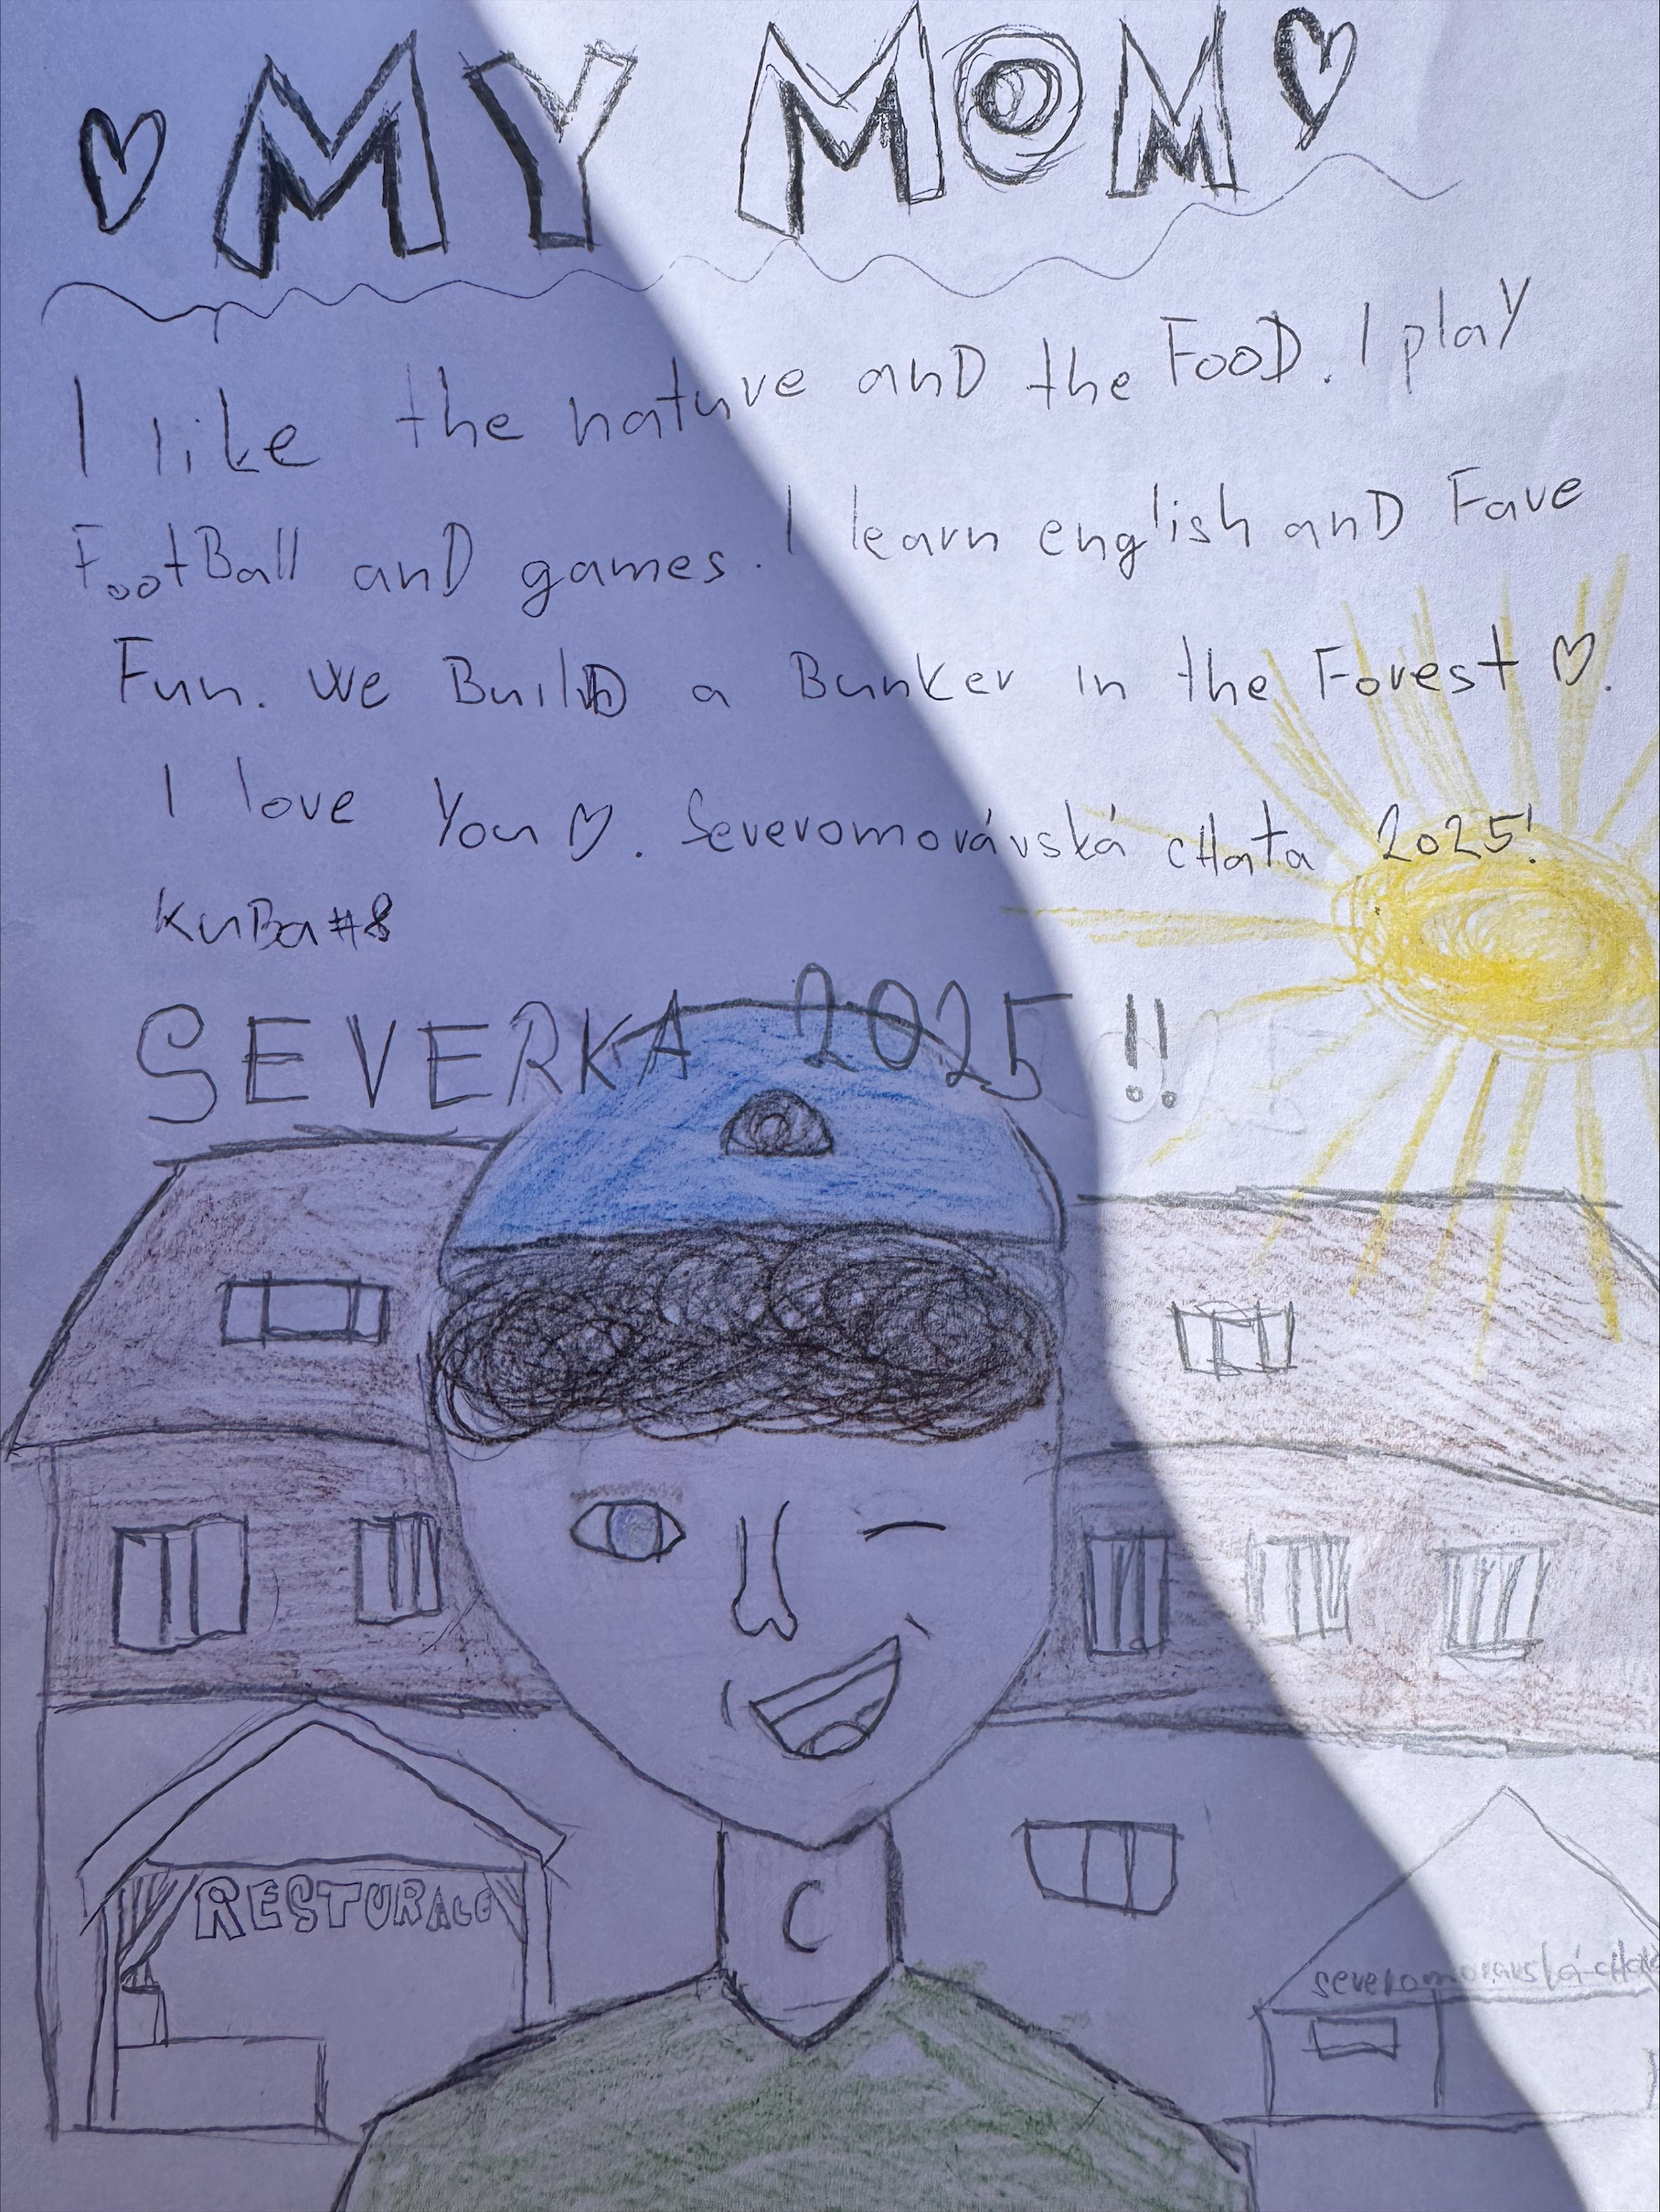 ♡ MY MOM ♡
I like the nature anD the FooD. I play
FootBall anD games. I learn english anD Fave
Fun. We BuilD a Bunker in the Forest ♡.
I love You ♡. Severomorávská cHata 2025!
KuBa#8
SEVERKA 2025!!
RESTURACE
C
severomoravská cHata